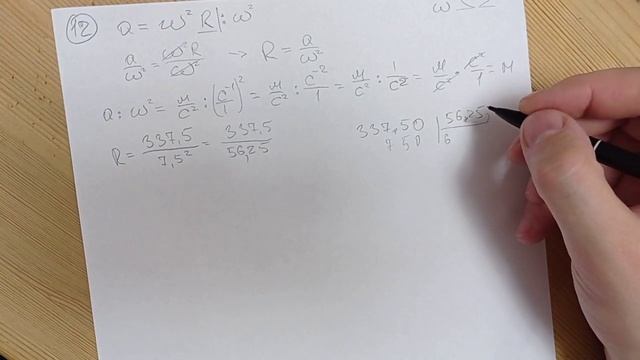 12 a = ω² R |: ω²
a/ω² = ω²R/ω² → R = a/ω²
a : ω² = м/с² : (с⁻¹/1)² = м/с² : с⁻²/1 = м/с² : 1/с² = м/с² · с²/1 = м
R = 337,5/7,5² = 337,5/56,25
337,50 | 56,25
750 | 6